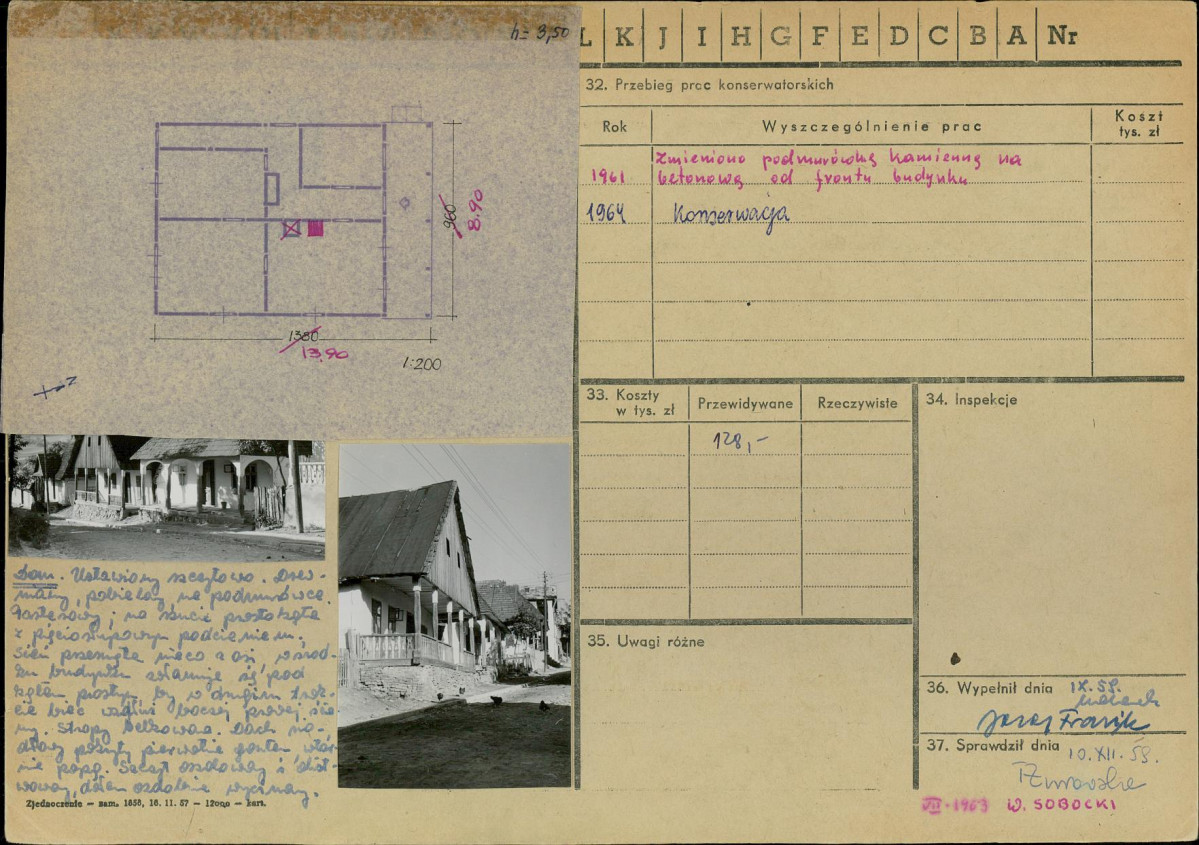 h = 3,50
960
8.90
1380
13.90
1:200
N
Dom. Ustawiony szczytowo. Drew-
niany, pobielany na podmurówce.
Parterowy; na rzucie prostokąta
z pięciosłupowym podcieniem.
Sień przesunięta nieco z osi, w środ-
ku budynku załamuje się pod
kątem prostym by w drugim trak-
cie biec wzdłuż bocznej prawej ścia-
ny. Stropy belkowane. Dach
pokryty pierwotnie gontem wtór-
nie papą. Szczyt oszalowany i
dołem ozdobnie wycinany.
Zjednoczenie — zam. 1858, 16. 11. 57 — 12000 — kart.
L K J I H G F E D C B A Nr
32. Przebieg prac konserwatorskich
Rok Wyszczególnienie prac Koszt tys. zł
Zmieniono podmurówkę kamienną na
1961 betonową od frontu budynku
1964 Konserwacja
33. Koszty w tys. zł Przewidywane Rzeczywiste
128,-
34. Inspekcje
35. Uwagi różne
36. Wypełnił dnia IX. 59.
Józef Frazik
37. Sprawdził dnia 10. XII. 59.
VII-1963 W. SOBOCKI